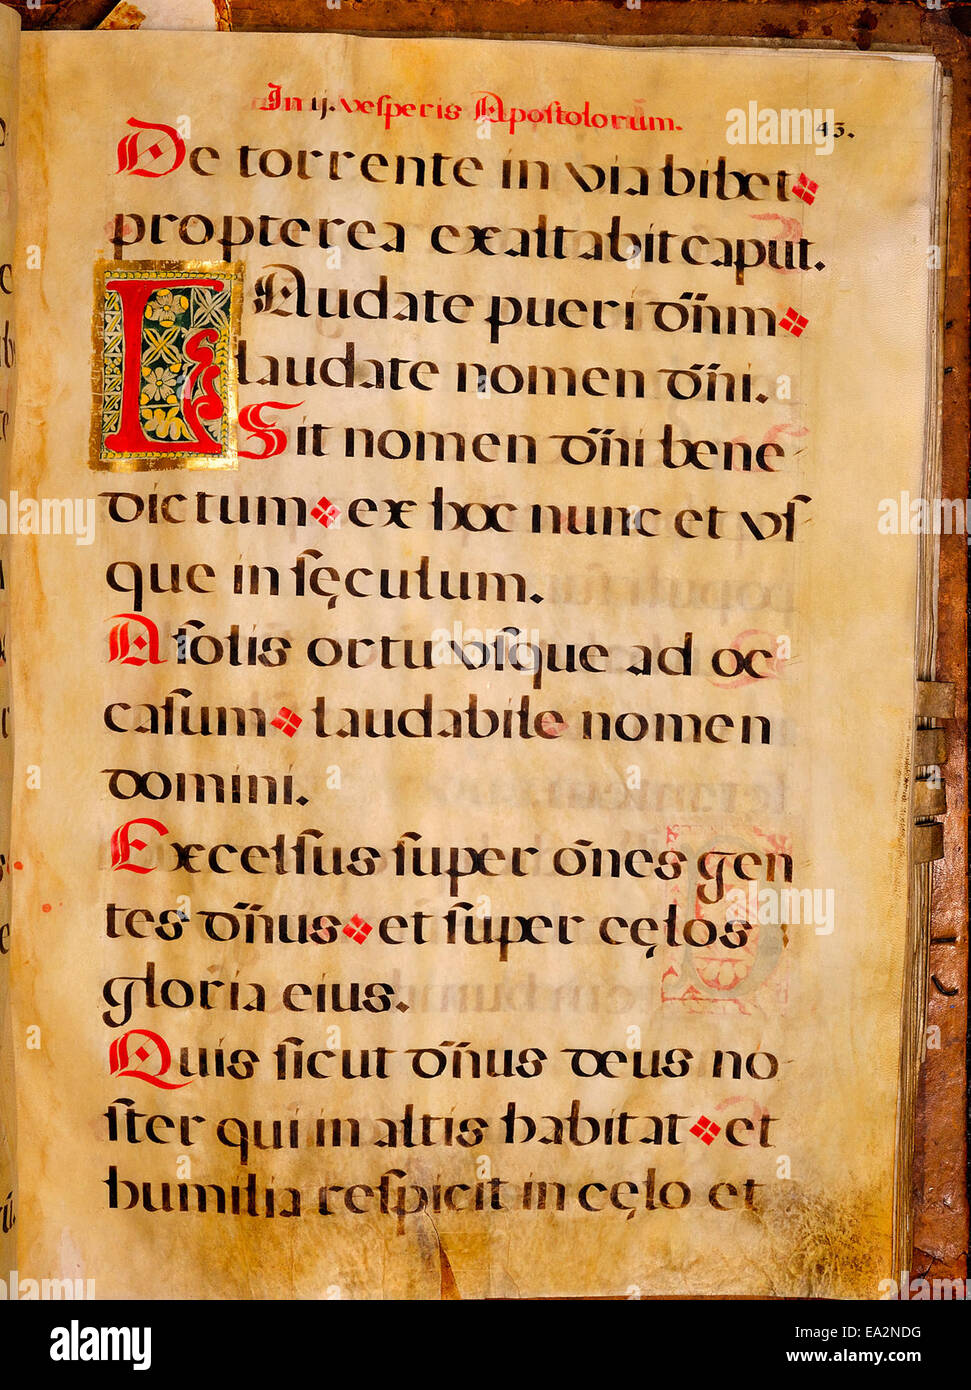 In ij. veſperis Apoſtolorum.
43.
De torrente in via bibet
propterea exaltabit caput.
LAudate pueri dn̄m
laudate nomen dn̄i.
Sit nomen dn̄i bene
dictum ex hoc nunc et vſ
que in ſęculum.
A ſolis ortu vſque ad oc
caſum laudabile nomen
domini.
Excelſus ſuper om̄es gen
tes dn̄us et ſuper cęlos
gloria eius.
Quis ſicut dn̄us deus no
ſter qui in altis habitat et
humilia reſpicit in cęlo et
alamy
Image ID: EA2NDG
www.alamy.com